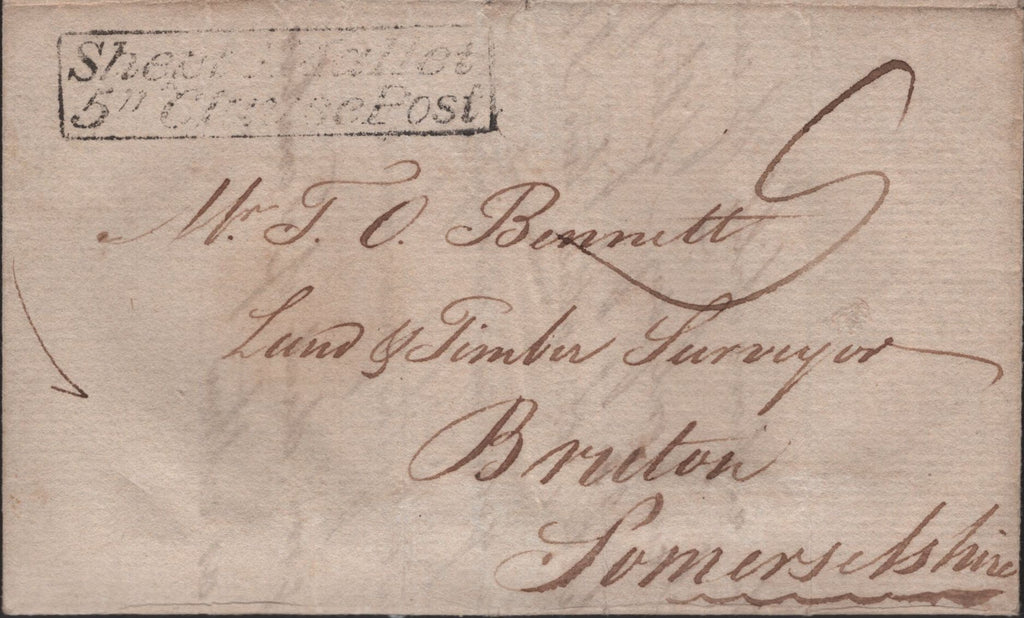 Shept Mallet
5th Clause Post
5
Mr. T. O. Bennett
Land & Timber Surveyor
Bruton
Somersetshire